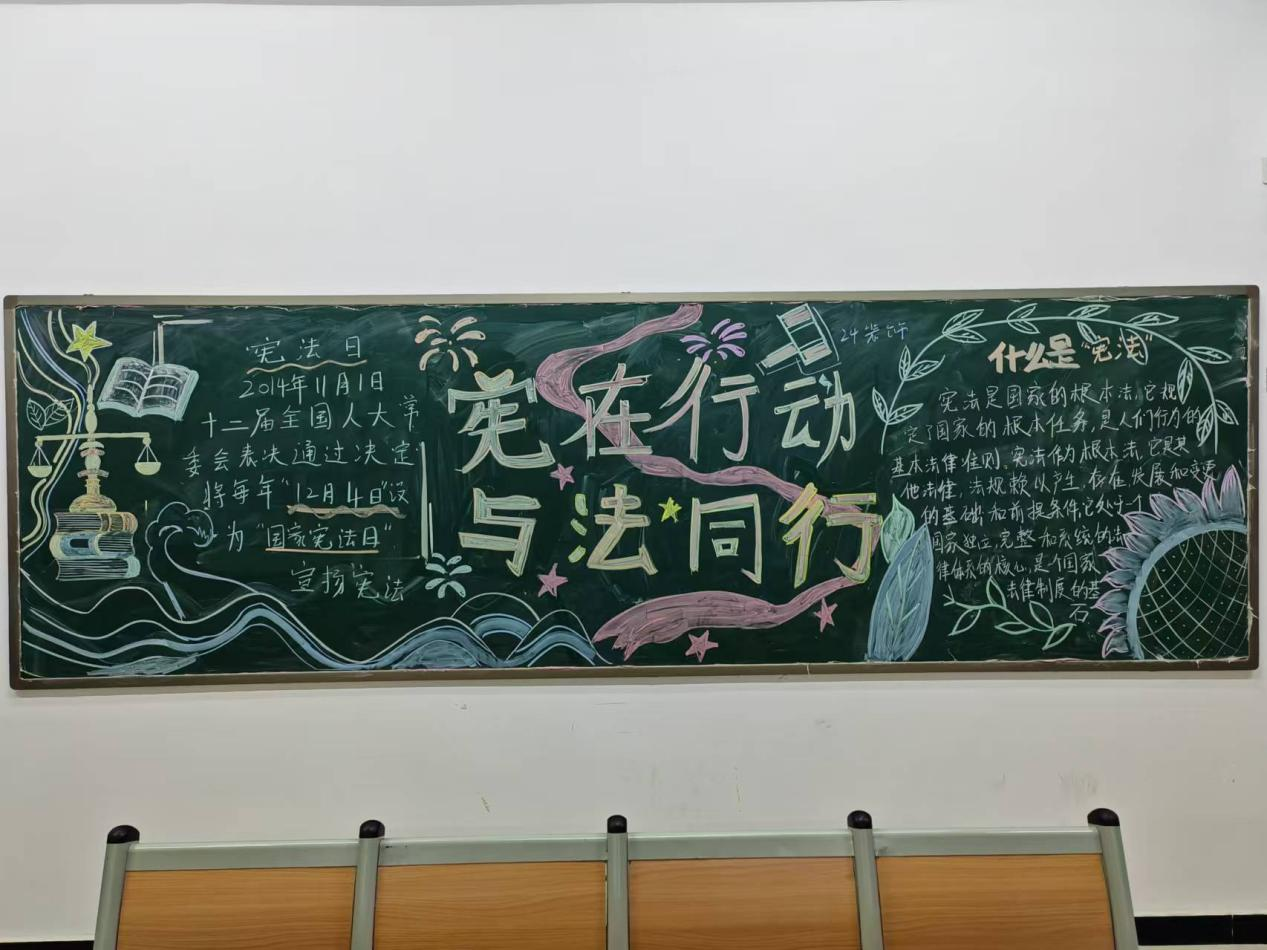 宪法日
2014年11月1日
十二届全国人大常
委会表决通过决定
将每年"12月4日"设
为"国家宪法日"
宣扬宪法
宪在行动
与法同行
24装饰
什么是"宪法"
宪法是国家的根本法,它规
定了国家的根本任务,是人们行为的
基本法律准则。宪法作为根本法,它是其
他法律,法规赖以产生,存在,发展和变更
的基础和前提条件,它处于一个
国家独立,完整和系统的法
律体系的核心,是一个国家
法律制度的基
石